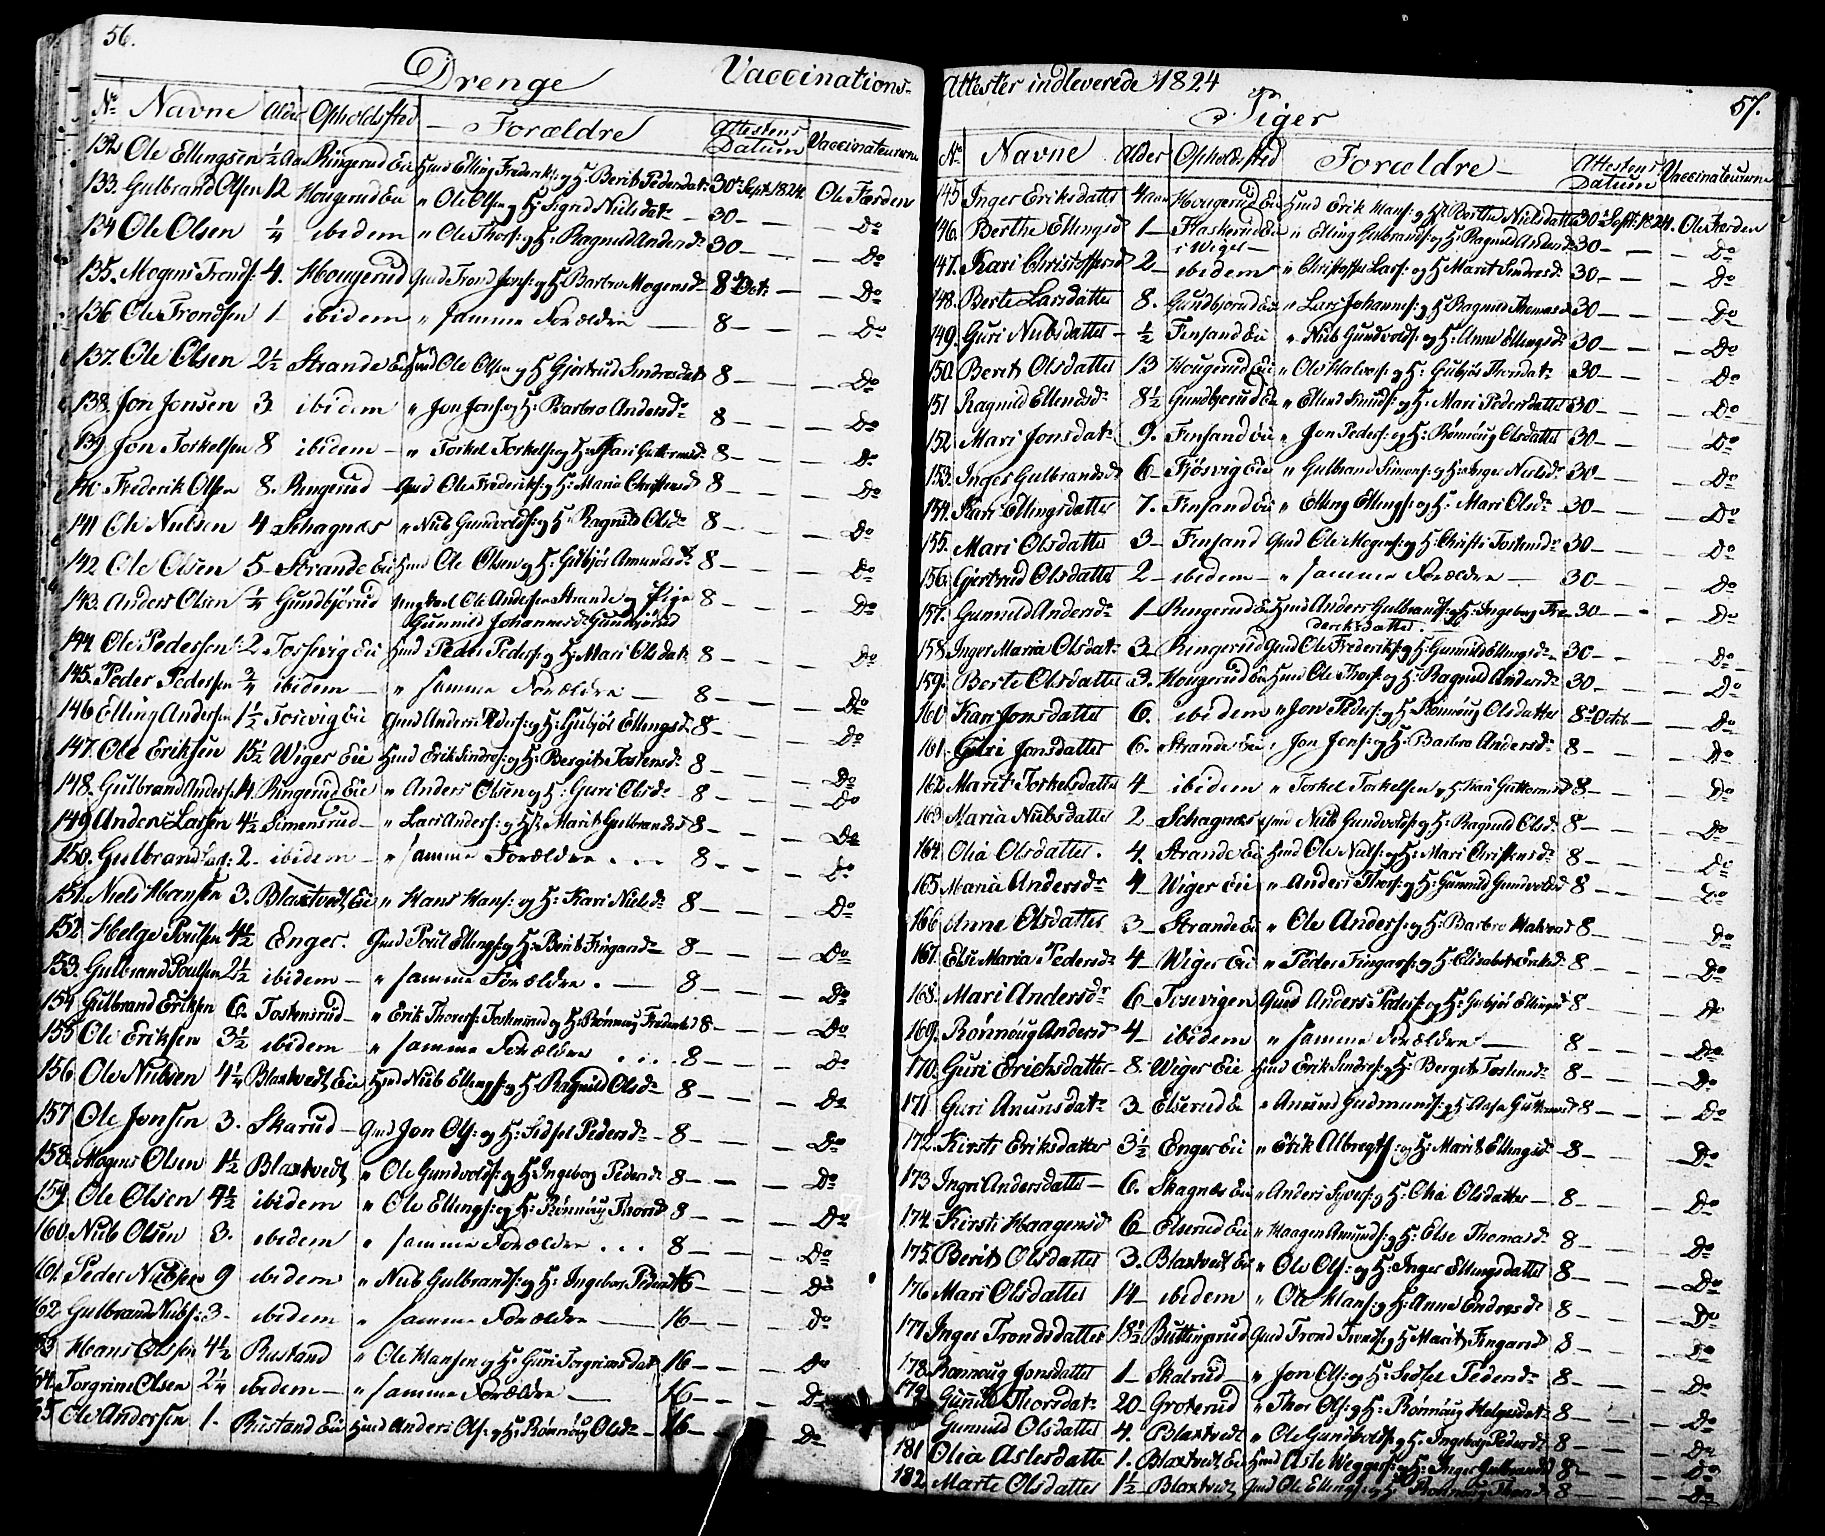 56.
Drenge Vaccinations-
No Navne Alder Opholdssted Forældre Attestens Datum Vaccinateurerne
132 Ole Ellingsen ½ Aar Ringerud Eie Huusmd Elling Frederiks: og H: Berit Pedersdat: 30te Sept: 1824. Ole Færden
133. Gulbrand Olsen 12 Hougerud Eie " Ole Olsen og H: Sigrid Nielsdat: 30 — Do
134 Ole Olsen ¼ ibidem " Ole Thors: og H: Ragnild Andersd: 30 — Do
135. Mogens Trondf: 4. Hougerud Gmd Trond Jons: og H: Barbro Mogensd: 8de Oct: — Do
136 Ole Trondsen 1 ibidem " samme Forældre — 8 — Do
137. Ole Olsen 2½ Strande Eie Hmd Ole Olsen og H: Gjertrud Sindresdat: 8 — Do
138. Jon Jonsen 3 ibidem " Jon Jons: og H: Barbro Andersd: 8 — Do
139 Jon Torkelsen 8 ibidem — " Torkel Torkels: og H: Kari Guttormsd: 8 — Do
140 Frederik Olsen 8. Ringerud — Gmd Ole Frederiks: og H: Maria Christensd 8 — Do
141 Ole Nielsen 4 Schagnæs " Niels Gundvolds: og H: Ragnild Olsd: 8 — Do
142 Ole Olsen 5 — Strande Eie Hmd Ole Olsen og H: Gubjør Amundsd: 8 — Do
143. Anders Olsen ¼ Gundbjørud Ungkarl Ole Andersen Strande og Pige 8 — Do
Gunnild Johannesd: Gundbjørud
144. Ole Pedersen 2 Tosevig Eie Hmd Peder Peders: og H: Mari Olsdat: 8 — Do
145. Peder Pedersen ¾ ibidem — " samme Forældre — 8 — Do
146 Elling Andersen 1½ Tosevig Eie Gmd Anders Peders: og H: Gubjør Ellingsd: 8 — Do
147. Ole Eriksen 15½ Wiger Eie Hmd Erik Sindres: og H: Bergit Tostensd: 8 — Do
148. Gulbrand Anders: 4. Ringerud Eie " Anders Olsen og H: Guri Olsd: 8 — Do
149 Anders Larsen 4½ Simensrud — " Lars Anders: og H: Marit Gulbrandsd 8 — Do
150. Gulbrand Lars: 2 — ibidem — " samme Forældre . . . 8 — Do
151. Niels Hansen 3. Blaxtvedt Eie " Hans Hans: og H: Kari Nielsd: 8 — Do
152 Helge Poulsen 4½ Enger. Gmd Poul Ellings: og H: Berit Fingarsd: 8 — Do
153. Gulbrand Poulsen 2½ ibidem — " samme Forældre . — 8 — Do
154 Gulbrand Eriksen 6. Tostensrud — " Erik Thores: Tostensrud og H: Rønnoug Frederiksd 8 — Do
155 Ole Eriksen 3½ ibidem — " samme Forældre . . . 8 — Do
156 Ole Nielsen 4¼ Blaxtvedt Eie Hmd Niels Ellings: og H: Ragnild Olsd: 8 — Do
157 Ole Jonsen 3. Skarud — Gmd Jon Ols: og H: Sidsel Pedersd: 8 — Do
158 Mogens Olsen 1½ Blaxtvedt " Ole Gundvolds: og H: Ingeborg Pedersd: 8 — Do
159. Ole Olsen 4½ ibidem " Ole Ellings: og H: Rønnoug Thorsd: 8 — Do
160. Niels Olsen 3. ibidem " samme Forældre . . . 8 — Do
161. Peder Nielsen 9 ibidem " Niels Gulbrands: og H: Ingeborg Pedersd: 16 — Do
162 Gulbrand Niels: 3. ibidem " samme Forældre — 16 — Do
163 Hans Olsen 4½ Rustand " Ole Hansen og H: Guri Torgrimsdat: 16 — Do
164. Torgrim Olsen 2¼ ibidem — " samme Forældre — 16 — Do
165 Ole Andersen 1. Rustand Eie Hmd Anders Ols: og H: Rønnoug Olsd: 16 — Do
Attester indleverede 1824 57.
Piger
No Navne Alder Opholdssted Forældre — Attestens Datum Vaccinateurerne
145 Inger Eriksdatter 4 Aar Hougerud Eie Hmd Erik Hans: og H: Berthe Nielsdatter 30te Sept: 1824. Ole Færden
146. Berthe Ellingsd 1 — Flaskerud Eie " Elling Gulbrands: og H: Ragnild Andersd: 30 — Do
i Wiger —
147. Kari Christoffersd 2 — ibidem " Christoffer Lars: og H: Marit Sindresd: 30 — Do
148. Berte Larsdatter 8. Gundbjorud Eie " Lars Johannes: og H: Ragnild Thomasd 30 — Do
149. Guri Nielsdatter ½ Finsand Eie " Niels Gundvolds: og H: Anne Ellingsd: 30 — Do
150. Berit Olsdatter 13 Hougerud Eie " Ole Halvors: og H: Gubjør Thorsdat: 30 — Do
151 Ragnild Ellendsd: 8½ Gundbjorud Eie " Ellend Knuds: og H: Mari Pedersdatter 30 — Do
152. Mari Jonsdat: 9. Finsand Eie " Jon Peders: og H: Rønnoug Olsdatter 30 — Do
153. Inger Gulbrandsd 6 — Fjøsvig Eie " Gulbrand Simons: og H: Inger Nielsd: 30 — Do
154. Kari Ellingsdatter 7. Finsand Eie " Elling Ellings: og H: Mari Olsd: 30 — Do
155. Mari Olsdatter 3 — Finsand Gmd Ole Mogens: og H: Christi Tostensd: 30 — Do
156. Gjertrud Olsdatter 2 — ibidem — " samme Forældre — 30 — Do
157. Gunnild Andersd: 1 — Ringerud Eie Hmd Anders Gulbrands: og H: Ingeborg Fre 30 — Do
deriksdatter.
158 Inger Maria Olsdat: 3 — Ringerud Gmd Ole Frederiks: og H: Gunnild Ellingsd: 30 — Do
159. Berte Olsdatter 3. Hougerud Eie Hmd Ole Thors: og H: Ragnild Andersd: 30 — Do
160 Kari Jonsdatter 6. ibidem " Jon Peders: og H: Rønnoug Olsdatter 8de Octob — Do
161. Guri Jonsdatter 6. Strande Eie " Jon Jons: og H: Barbro Andersd: 8 — Do
162 Marit Torkelsdatter 4 — ibidem " Torkel Torkelsen og H: Kari Guttormsd 8 — Do
163 Maria Nielsdatter 2 — Schagnæs Gmd Niels Gundvolds: og H: Ragnild Olsd: 8 — Do
164. Olia Olsdatter. 4. Strande Eie Hmd Ole Niels: og H: Mari Christensd: 8 — Do
165 Maria Andersdr 4 — Wiger Eie " Anders Thors: og H: Gunnild Gundvoldsd 8 — Do
166 Anne Olsdatter 3 — Strande Eie " Ole Anders: og H: Barbro Halvorsd 8 — Do
167. Else Maria Pedersd: 4 — Wiger Eie " Peder Fingars: og H: Elisabet Eriksd: 8 — Do
168. Mari Andersdr 6 Tosevigen Gmd Anders Peders: og H: Gubjør Ellingsd 8 — Do
169. Rønnoug Andersd 4 — ibidem " samme Forældre — 8 — Do
170. Guri Erichsdatter — 8. Wiger Eie Hmd Erik Sindres: og H: Bergit Tostensd: 8 — Do
171 Guri Amunsdat: 3 — Elserud Eie " Amund Gudmunds: og H: Aase Guttormsd 8 — Do
172. Kirsti Eriksdatter 3½ Enger Eie " Erik Albregts: og H: Marit Ellingsd: 8 — Do
173 Ingri Andersdatter — 6. Skagnæs Eie " Anders Syvers: og H: Olia Olsdatter — 8 — Do
174. Kirsti Haagensd 6 — Elserud Eie " Haagen Amunds: og H: Else Thomasd: 8 — Do
175. Berit Olsdatter 3. Blaxtvedt Eie " Ole Ols: og H: Inger Ellingsdatter 8 — Do
176 Mari Olsdatter 14 — ibidem " Ole Hans: og H: Anne Endresd: 8 — Do
177 Inger Trondsdatter 18½ Buttingsrud Gmd Trond Tronds: og H: Marit Fingarsd: 8 — Do
178. Rønnoug Jonsdatter 1 — Skalrud — " Jon Ols: og H: Sidsel Pedersd: 8 — Do
179. Gunnild Thorsdat: 20 — Groterud " Thor Ols: og H: Rønnoug Helgesdat: 8 — Do
Gunnild Olsdatter 4. Blaxtvedt " Ole Gundvolds: og H: Ingeborg Pedersd: 8 — Do
181 Olia Aslesdatter 1. Blaxtvedt Eie Hmd Asle Weggers: og H: Inger Gulbrandsd 8 — Do
182 Marte Olsdatter 1½ — Blaxtvedt Gmd Ole Ellings: og H: Rønnoug Thorsd: 8 — Do